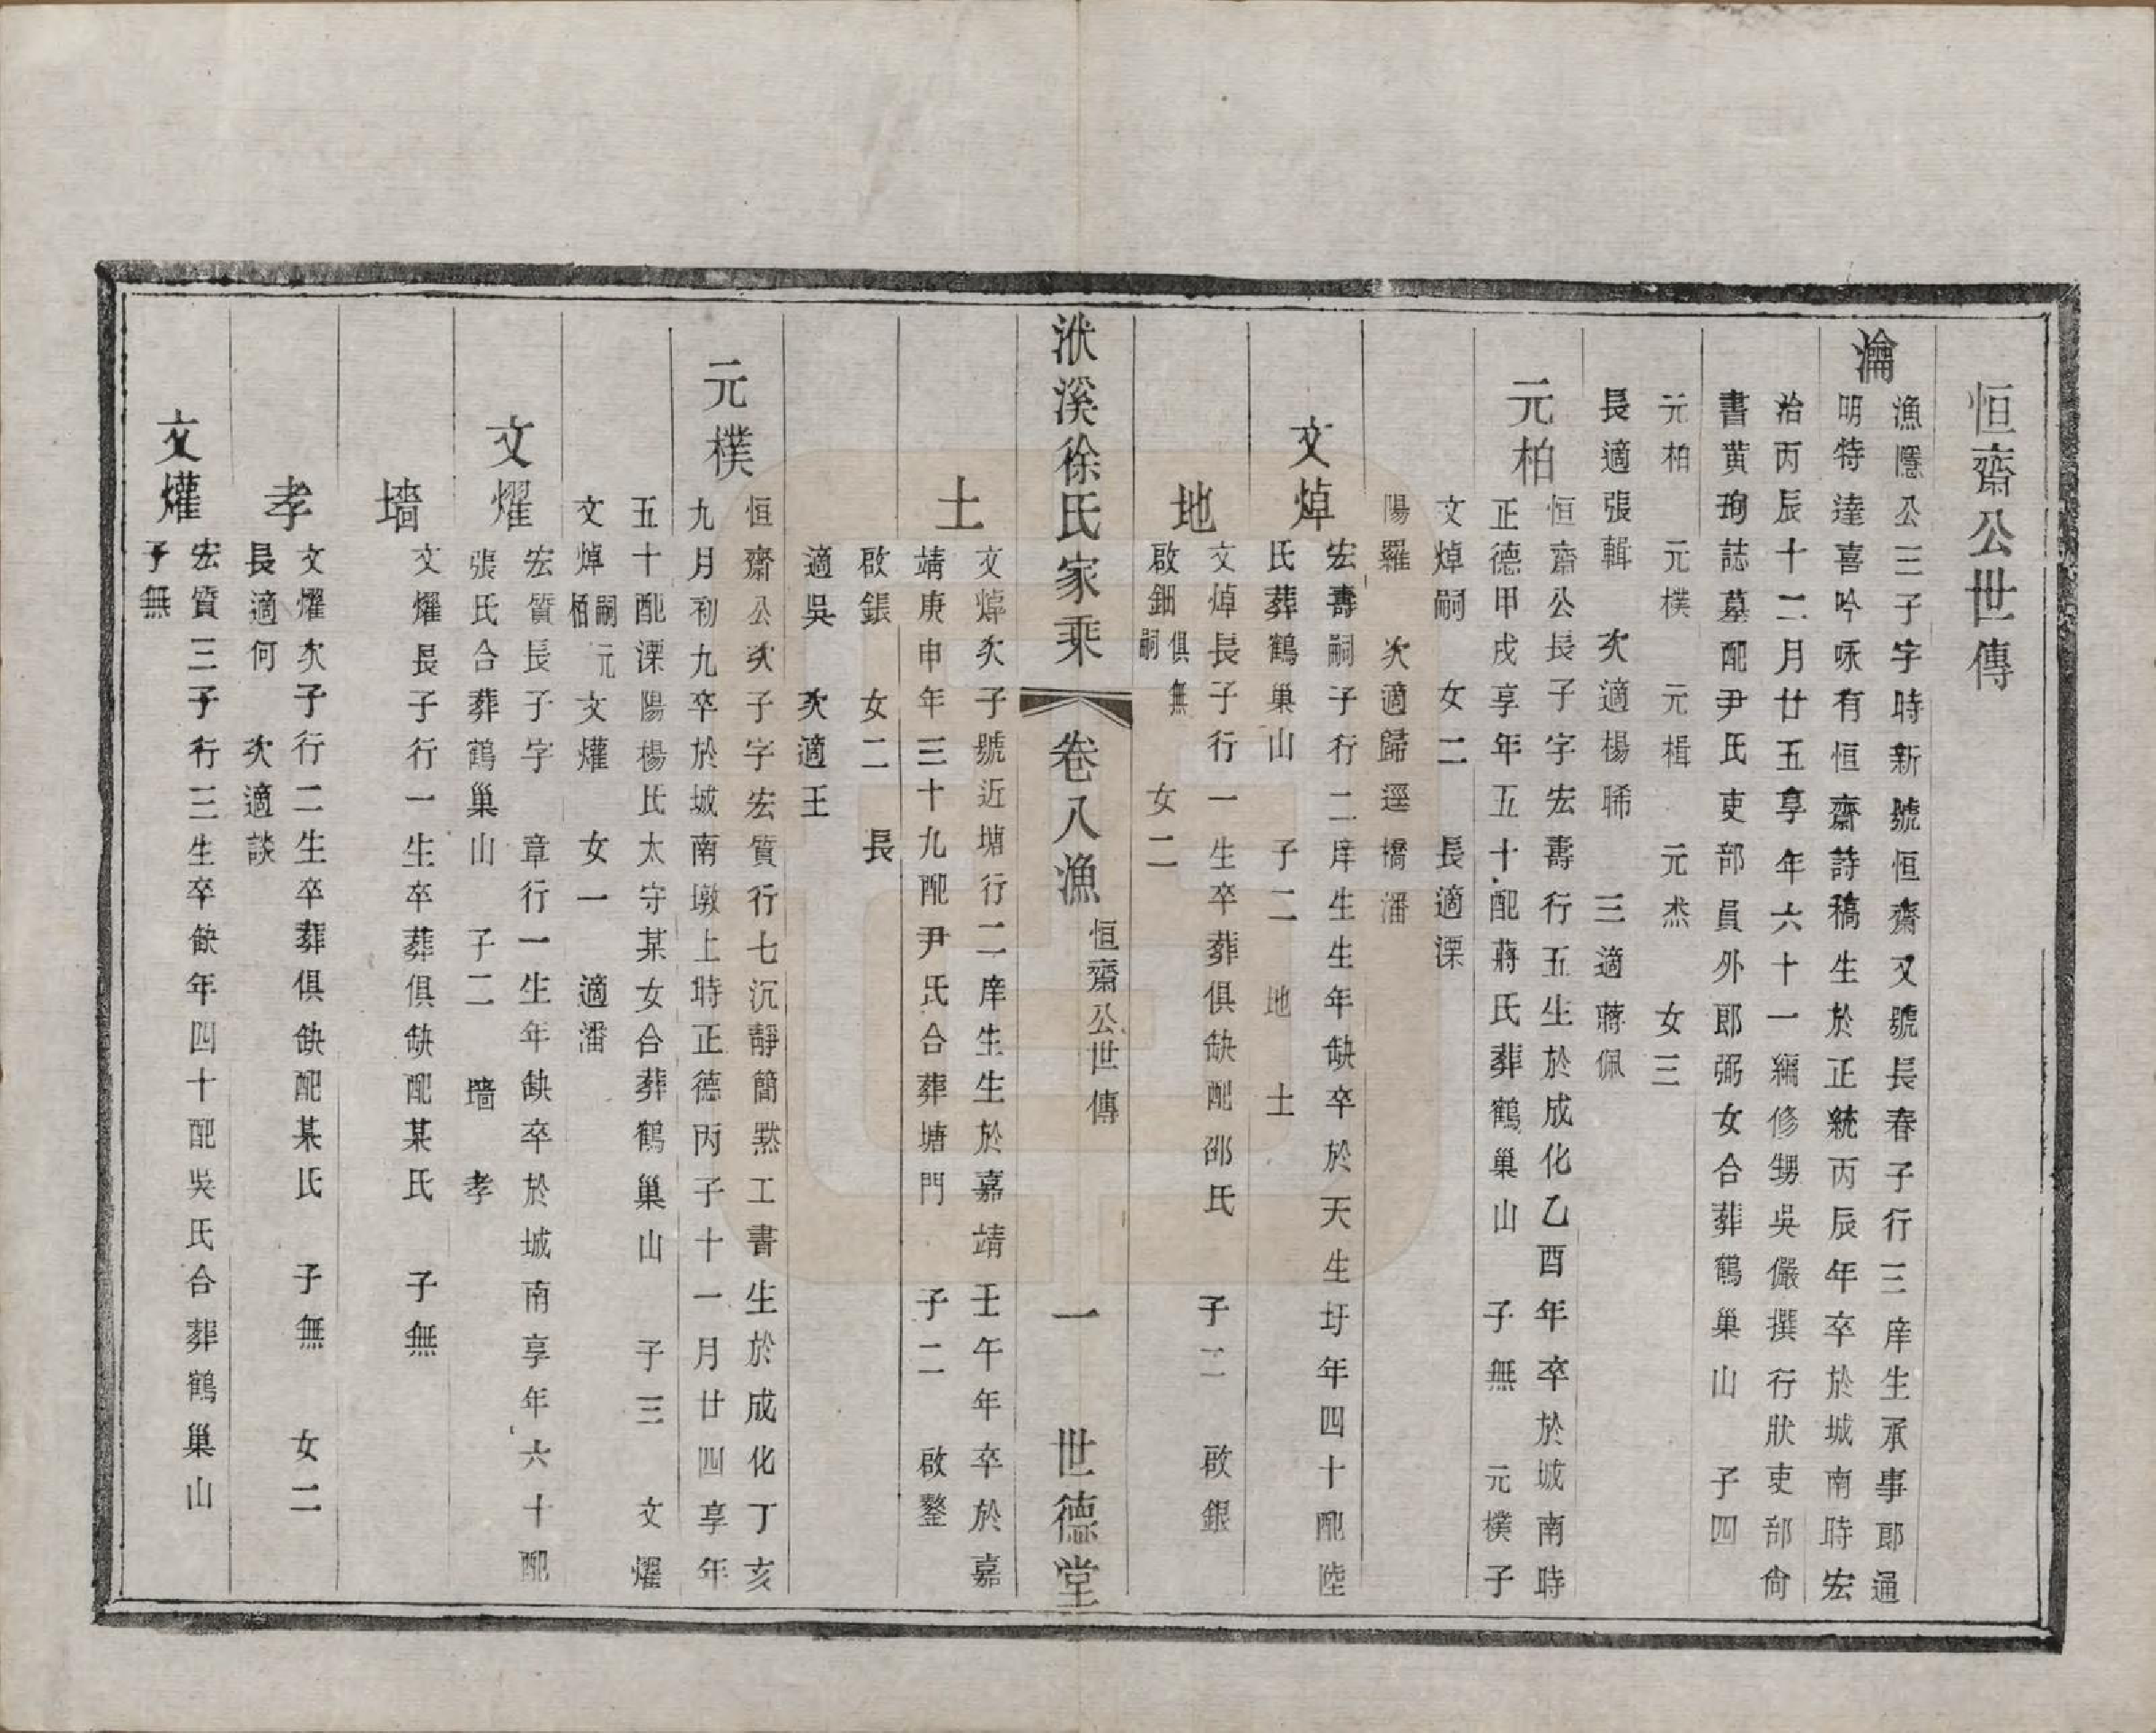 恒齋公世傳
瀹
漁隱公三子字時新號恒齋又號長春子行三庠生承事郎通
明特達喜吟咏有恒齋詩稿生於正統丙辰年卒於城南時宏
治丙辰十二月廿五享年六十一編修甥吳儼撰行狀吏部尙
書黄珣誌墓配尹氏吏部員外郎弼女合葬鶴巢山 子四
元柏 元樸 元楫 元杰 女三
長適張輯 次適楊晞 三適蔣佩
元柏
恒齋公長子字宏壽行五生於成化乙酉年卒於城南時
正德甲戌享年五十配蔣氏葬鶴巢山 子無 元樸子
文焯嗣 女二 長適溧
陽羅 次適歸逕橋潘
文焯
宏壽嗣子行二庠生生年缺卒於天生圩年四十配陸
氏葬鶴巢山 子二 地 土
地
文焯長子行一生卒葬俱缺配邵氏 子二 啟銀
啟鈿俱無嗣 女二
洑溪徐氏家乘 卷八漁 恒齋公世傳 一 世德堂
土
文焯次子號近塘行二庠生生於嘉靖壬午年卒於嘉
靖庚申年三十九配尹氏合葬塘門 子二 啟鏊
啟鋹 女二 長
適吳 次適王
元樸
恒齋公次子字宏質行七沉靜簡黙工書生於成化丁亥
九月初九卒於城南墩上時正德丙子十一月廿四享年
五十配溧陽楊氏太守某女合葬鶴巢山 子三 文燿
文焯嗣元栢 文爟 女一 適潘
文燿
宏質長子字 章行一生年缺卒於城南享年六十配
張氏合葬鶴巢山 子二 墻 孝
墻
文燿長子行一生卒葬俱缺配某氏 子無
孝
文燿次子行二生卒葬俱缺配某氏 子無 女二
長適何 次適談
文爟
宏質三子行三生卒缺年四十配吳氏合葬鶴巢山
子無